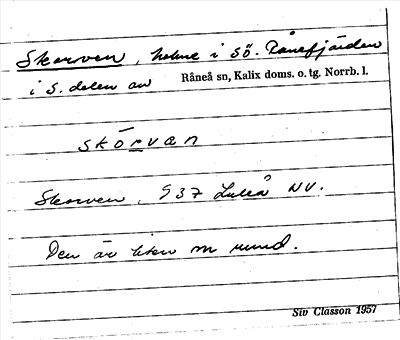 Skorven, holme i sö. Rånefjärden
i S. delen av Råneå sn, Kalix doms. o. tg. Norrb. l.
skórvan
Skorven, 937 Luleå NV.
Den är liten o rund.
Siv Classon 1957